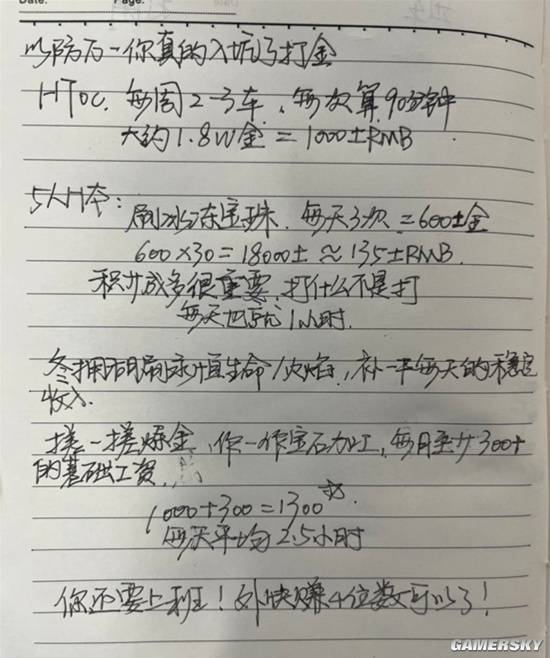 Date:
Page:
以防万一你真的入坑了打金
HTOC. 每周2-3车、每次算90分钟
大约1.8W金=1000±RMB
5人H本:
刷冰冻宝珠.每天3次=600±金
600×30=18000±≈135±RMB.
积少成多很重要,打什么不是打
每天也就1小时.
冬拥湖刷永恒生命/火焰,补一半每天的稳定
收入.
搓一搓炼金、你一作宝石加工,每月至少300+
的基础工资,
1000+300=1300
每天平均2.5小时
你还要上班!外快赚4位数可以了!
GAMERSKY